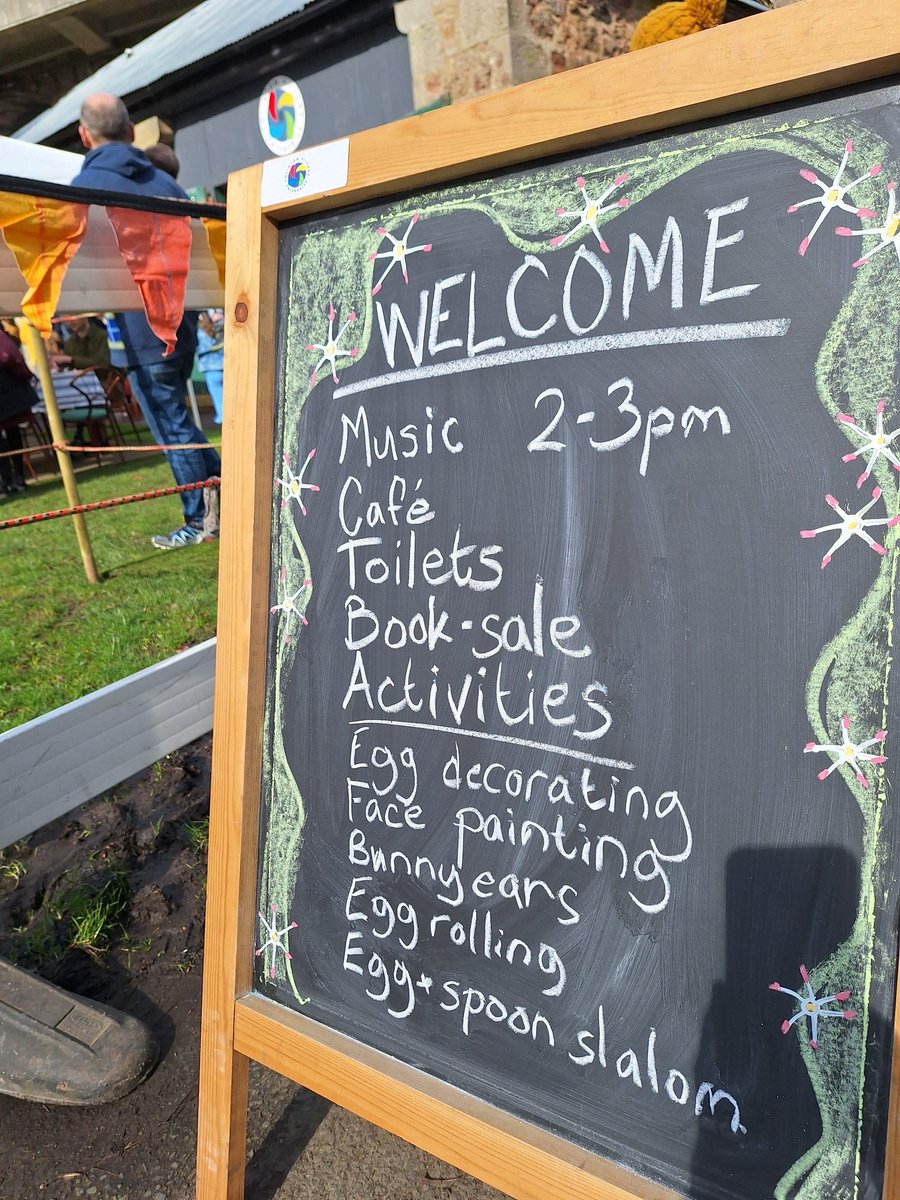 WELCOME
Music 2-3pm
Café
Toilets
Book-sale
Activities
Egg decorating
Face painting
Bunny ears
Egg rolling
Egg + spoon slalom